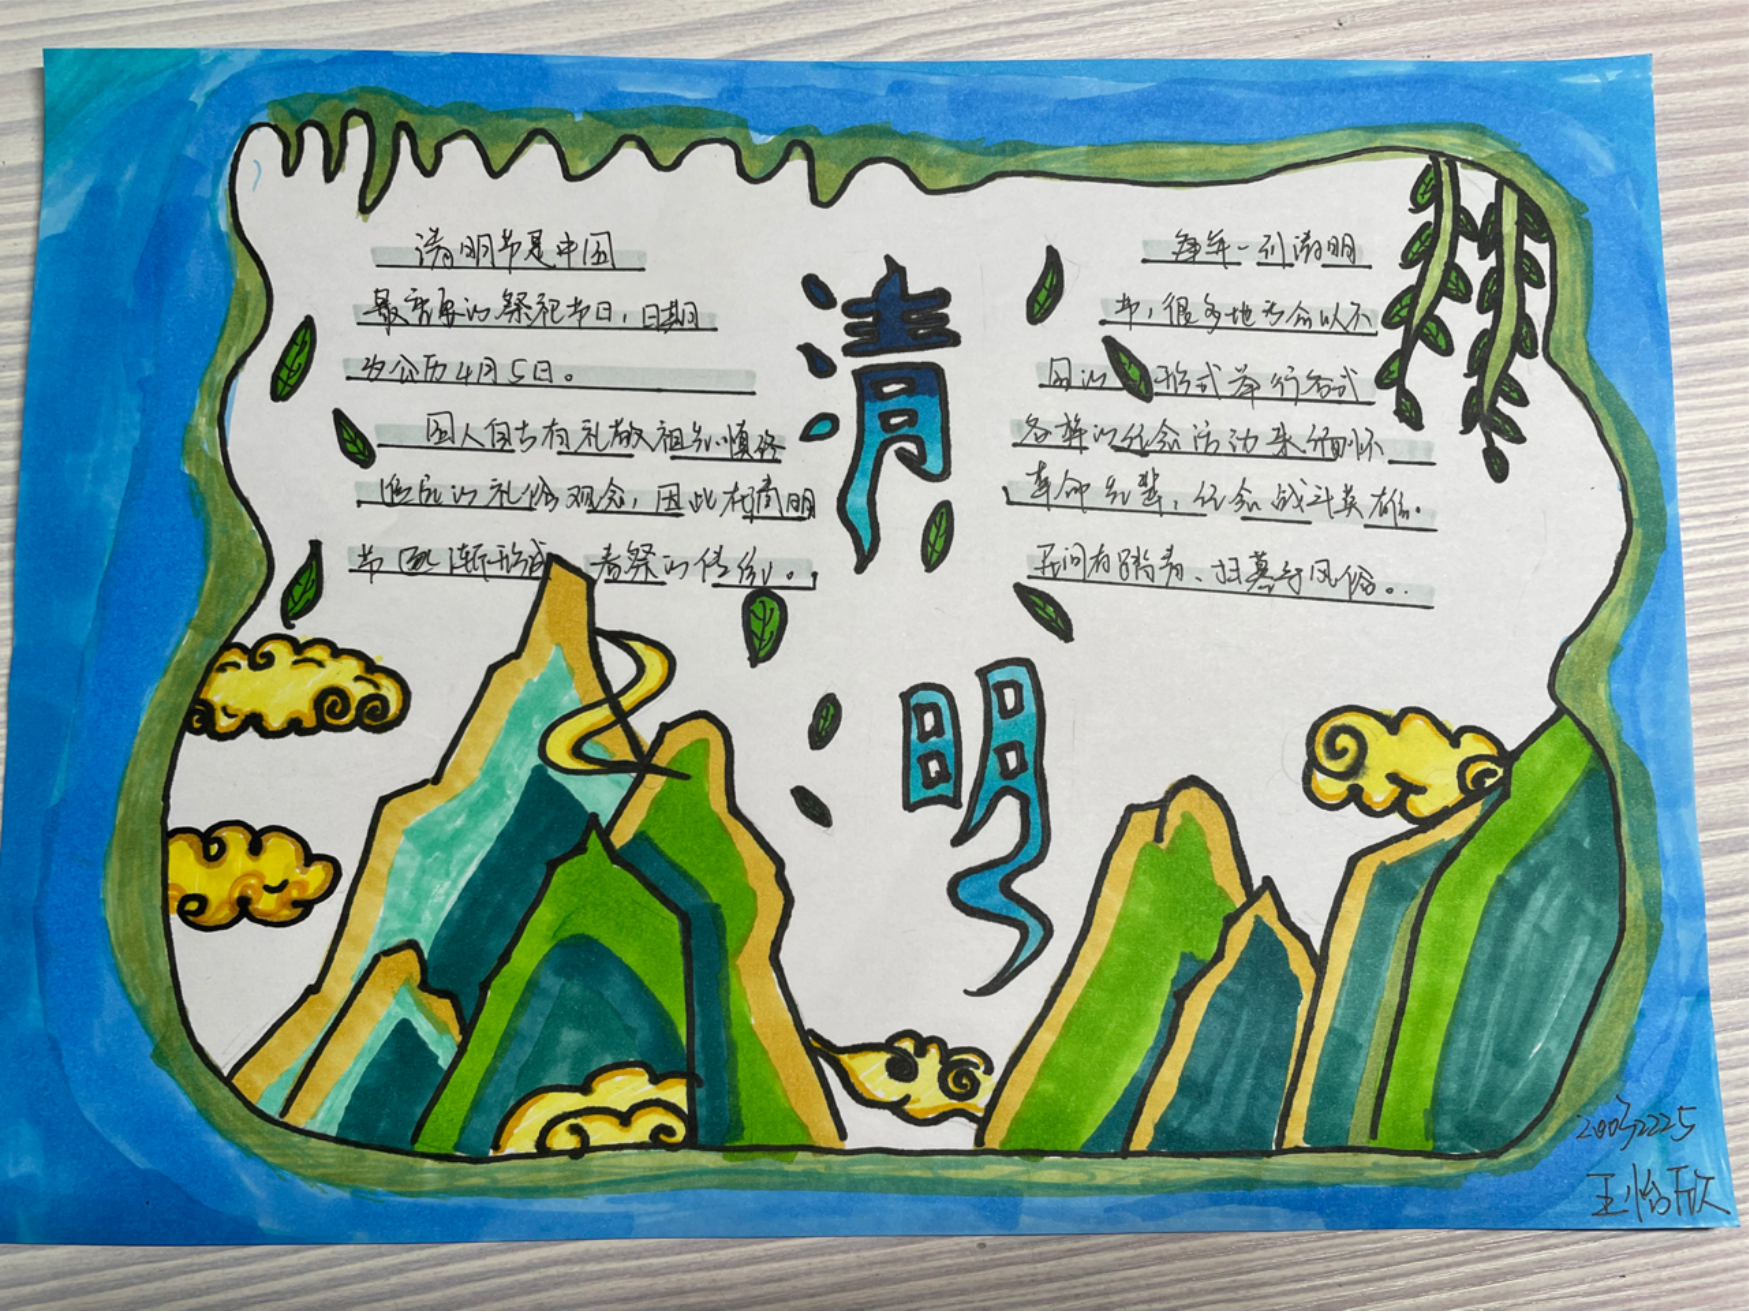 清明节是中国
最重要的祭祀节日，日期
为公历4月5日。
国人自古有礼敬祖先慎终
追远的礼俗观念，因此在清明
节逐渐形成 春祭的传统。
清
明
每年一到清明
节，很多地方会以不
同的 形式举行各式
各样的纪念活动来缅怀
革命先辈，纪念战斗英雄。
民间有踏青、扫墓等风俗。
王怡欣